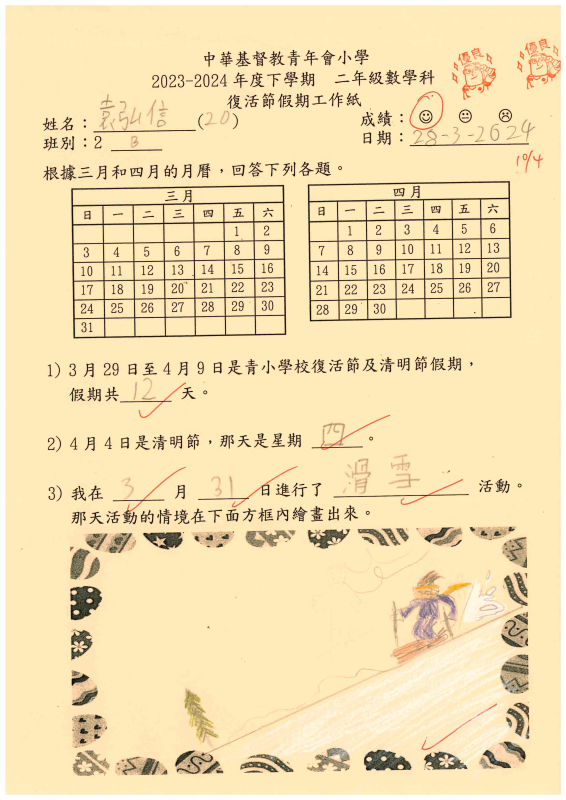 中華基督教青年會小學
2023-2024 年度下學期　二年級數學科
復活節假期工作紙
優良
優良
姓名：袁弘信(20)
成績：
班別：2 B
日期：28-3-2024
10/4
根據三月和四月的月曆，回答下列各題。
三月
日 一 二 三 四 五 六
1 2
3 4 5 6 7 8 9
10 11 12 13 14 15 16
17 18 19 20 21 22 23
24 25 26 27 28 29 30
31
四月
日 一 二 三 四 五 六
1 2 3 4 5 6
7 8 9 10 11 12 13
14 15 16 17 18 19 20
21 22 23 24 25 26 27
28 29 30
1) 3 月 29 日至 4 月 9 日是青小學校復活節及清明節假期，
假期共 12 天。
2) 4 月 4 日是清明節，那天是星期 四 。
3) 我在 3 月 31 日進行了 滑雪 活動。
那天活動的情境在下面方框內繪畫出來。